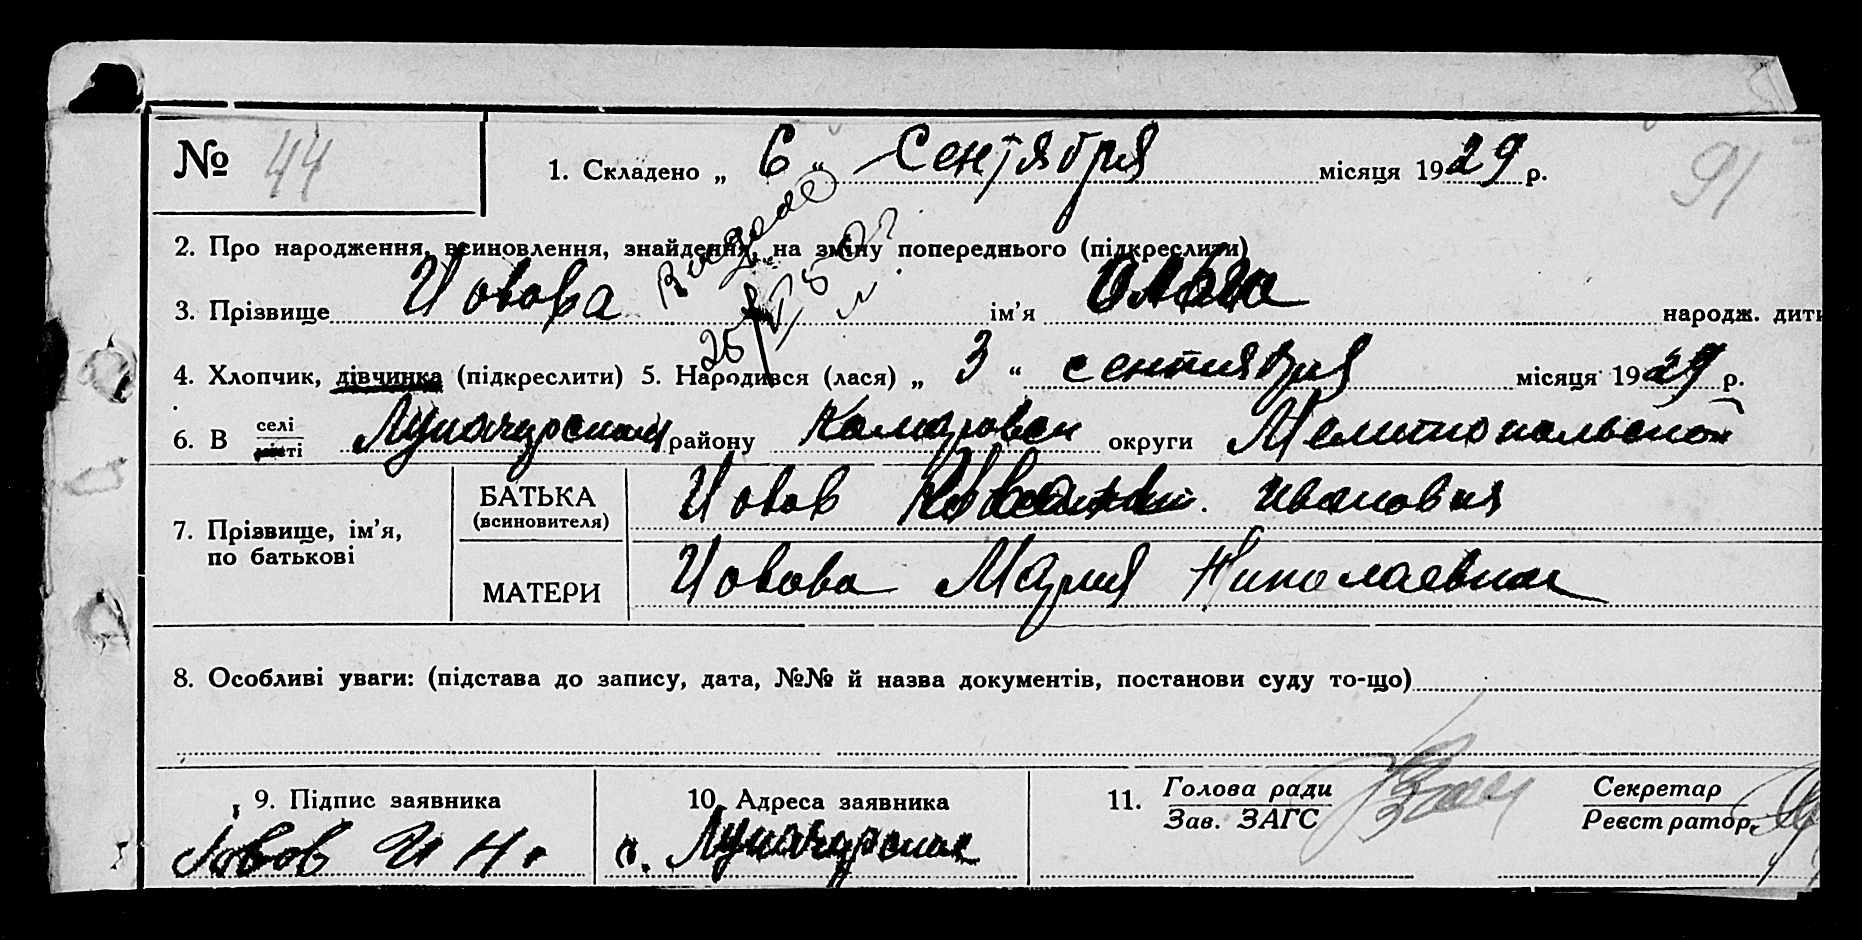 № 44
1. Складено „ 6 “ Сентября місяця 1929 р.
91
2. Про народження, всиновлення, знайдення, на зміну попереднього (підкреслити)
3. Прізвище Иовова ім’я Ольга народж. дити
4. Хлопчик, дівчинка (підкреслити) 5. Народився (лася) „ 3 “ сентября місяця 1929 р.
6. В селі місті Луначарском району округи Мелитопольской
7. Прізвище, ім’я, по батькові
БАТЬКА (всиновителя) Иовов Ивановия
МАТЕРИ Иовова Мария Николаевна
8. Особливі уваги: (підстава до запису, дата, №№ й назва документів, постанови суду то-що)
9. Підпис заявника
Іовов И Н.
10. Адреса заявника
с. Луначарская
11. Голова ради
Зав. ЗАГС
Секретар
Реєстратор,